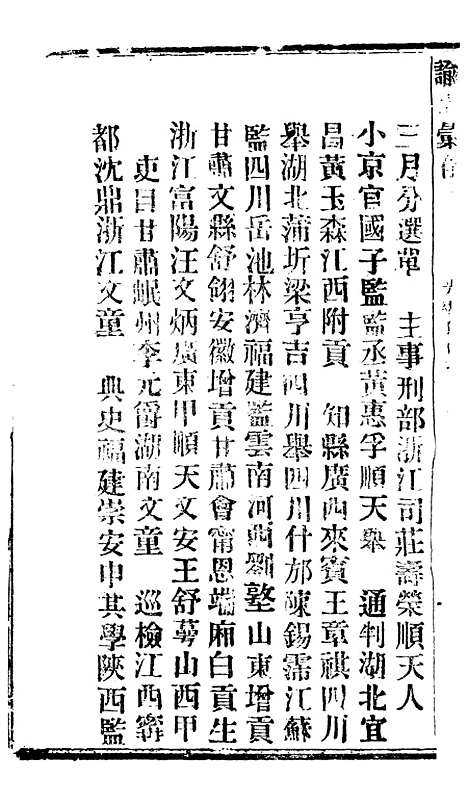 諭
彙
三月分選單　主事刑部浙江司莊壽榮順天人
小京官國子監監丞黃惠孚順天舉　通判湖北宜
昌黃玉森江西附貢　知縣廣西來賓王章祺四川
舉湖北蒲圻梁亨吉四川舉四川什邡陳錫霈江蘇
監四川岳池林濟福建監雲南河西劉塾山東增貢
甘肅文縣舒翎安徽增貢甘肅會甯恩端廂白貢生
浙江富陽汪文炳廣東甲順天文安王舒萼山西甲
吏目甘肅岷州李元爵湖南文童　巡檢江西寗
都沈鼎浙江文童　典史福建崇安申其學陝西監